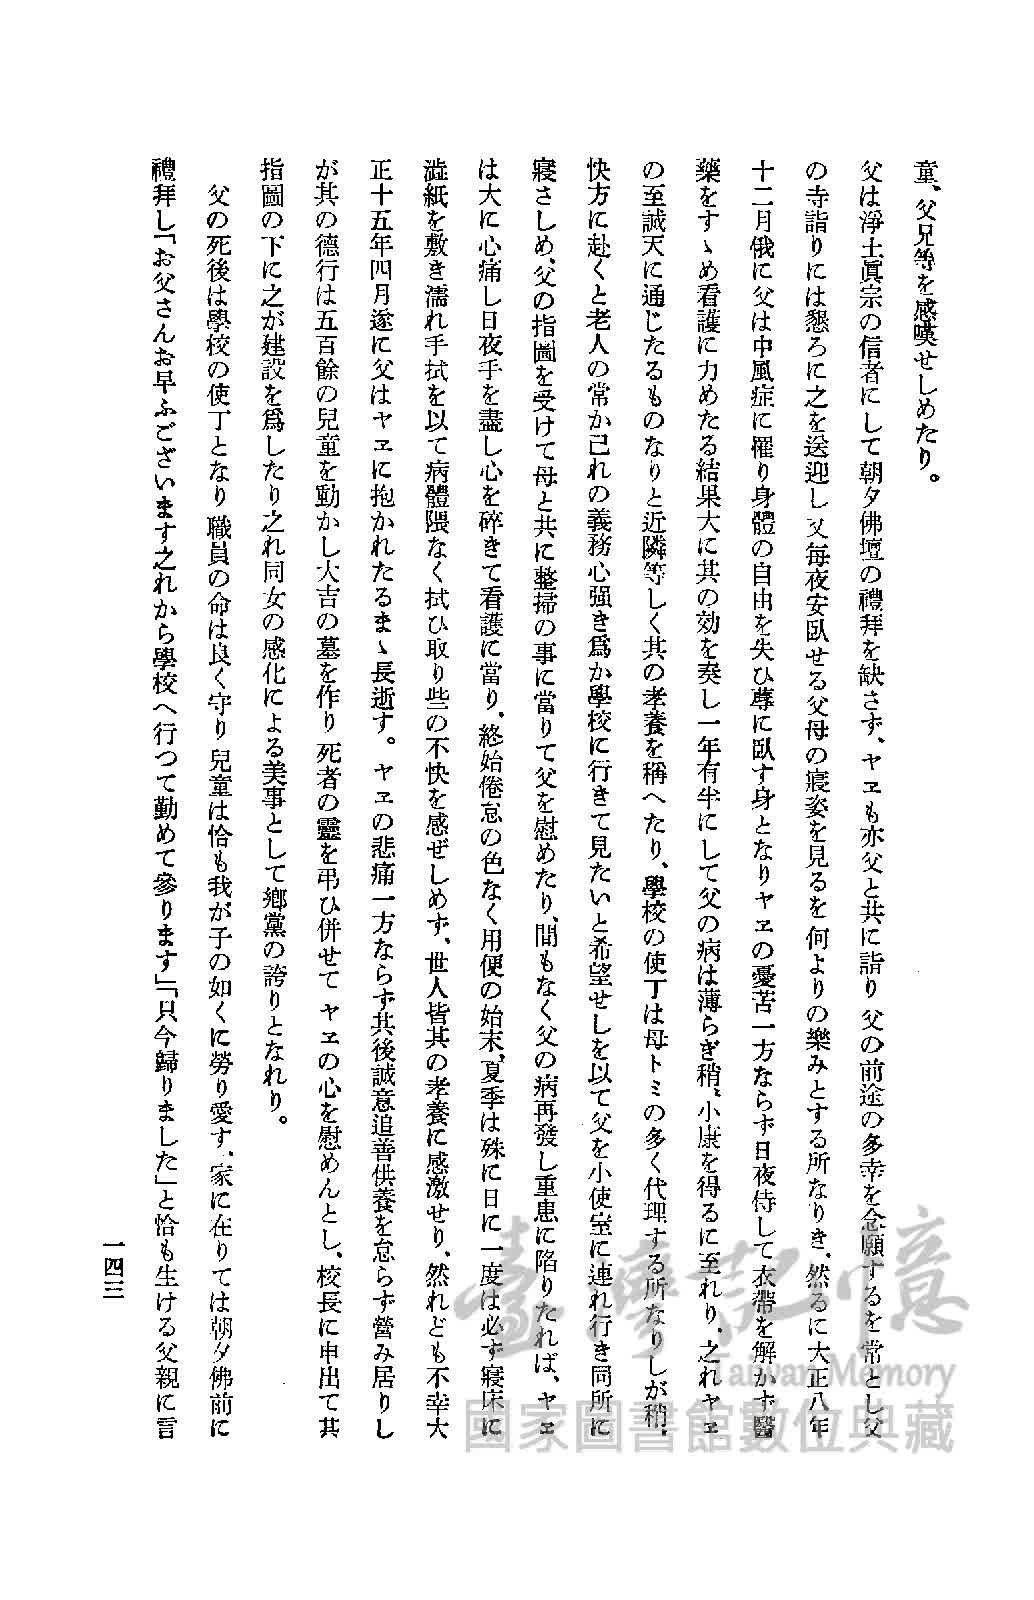 童、父兄等を感嘆せしめたり。
父は淨土眞宗の信者にして朝夕佛壇の禮拜を缺さず、ヤヱも亦父と共に詣り父の前途の多幸を念願するを常とし父
の寺詣りには懇ろに之を送迎し又每夜安臥せる父母の寢姿を見るを何よりの樂みとする所なりき、然るに大正八年
十二月俄に父は中風症に罹り身體の自由を失ひ蓐に臥す身となりヤヱの憂苦一方ならず日夜侍して衣帶を解かず醫
藥をすゝめ看護に力めたる結果大に其の効を奏し一年有半にして父の病は薄らぎ稍、小康を得るに至れり、之れヤヱ
の至誠天に通じたるものなりと近隣等しく其の孝養を稱へたり、學校の使丁は母トミの多く代理する所なりしが稍、
快方に赴くと老人の常か己れの義務心强き爲か學校に行きて見たいと希望せしを以て父を小使室に連れ行き同所に
寢さしめ、父の指圖を受けて母と共に整掃の事に當りて父を慰めたり、間もなく父の病再發し重患に陷りたれば、ヤヱ
は大に心痛し日夜手を盡し心を碎きて看護に當り、終始倦怠の色なく用便の始末、夏季は殊に日に一度は必ず寢床に
澁紙を敷き濡れ手拭を以て病體隈なく拭ひ取り些の不快を感ぜしめず、世人皆其の孝養に感激せり、然れども不幸大
正十五年四月遂に父はヤヱに抱かれたるまゝ長逝す。ヤヱの悲痛一方ならず其後誠意追善供養を怠らず營み居りし
が其の德行は五百餘の兒童を動かし大吉の墓を作り死者の靈を弔ひ併せてヤヱの心を慰めんとし、校長に申出て其
指圖の下に之が建設を爲したり之れ同女の感化による美事として鄕黨の誇りとなれり。
父の死後は學校の使丁となり職員の命は良く守り兒童は恰も我が子の如くに勞り愛す、家に在りては朝夕佛前に
禮拜し「お父さんお早ふございます之れから學校へ行つて勤めて參ります」「只今歸りました」と恰も生ける父親に言
一四三
臺灣記憶
Taiwan Memory
國家圖書館數位典藏